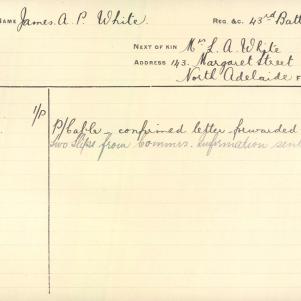 NAME James. A. P White. REG. &C. 43rd Batt
NEXT OF KIN Mrs L. A. White
ADDRESS 143. Margaret Street
North Adelaide
1/P P/Cable - confirmed letter forwarded
Two slips from Commrs. Information sent